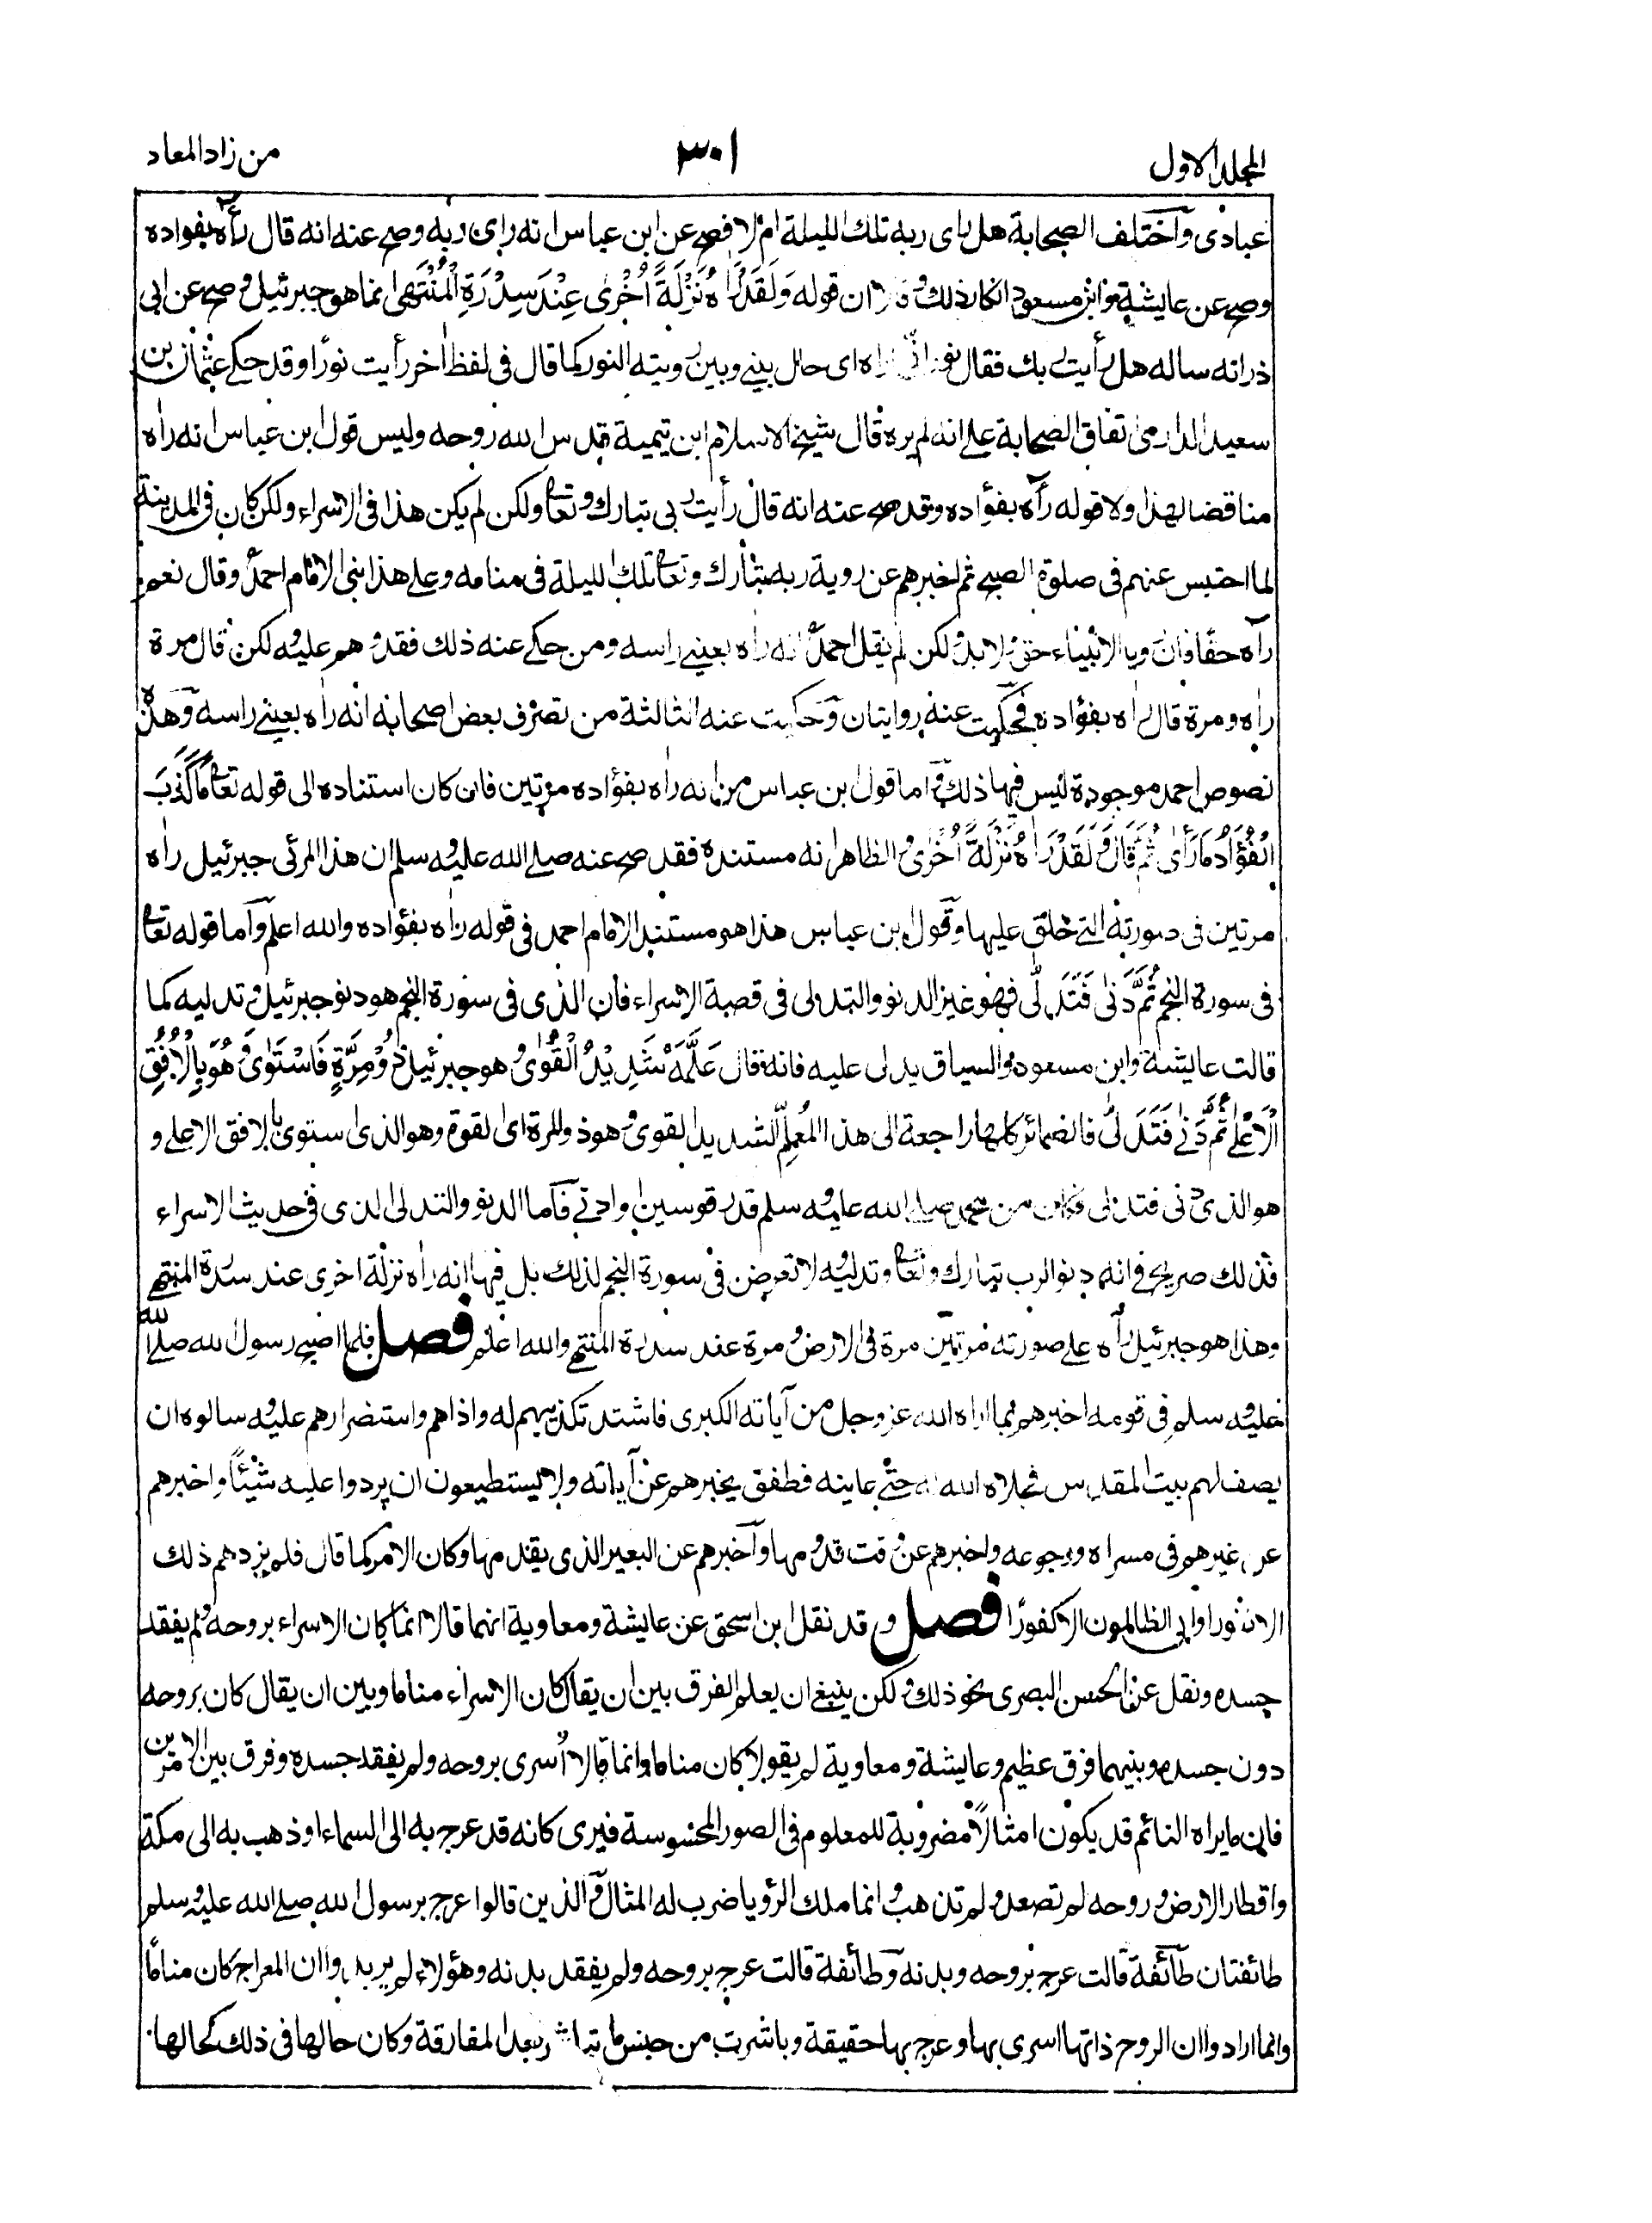 المجلد الاول
٣٠١
من زاد المعاد
عبادى وآختلف الصحابة هل راى ربه تلك الليلة ام لا فصح عن ابن عباس انه راى ربه وصح عنه انه قال رآه بفواده
وصح عن عايشة وابن مسعود انكار ذلك وقالا ان قوله وَلَقَدْ رَاٰهُ نَزْلَةً اُخْرٰى عِنْدَ سِدْرَةِ الْمُنْتَهٰى انما هو جبرئيل وصح عن ابى
ذر انه ساله هل رأيت ربك فقال نور انّى اراه اى حال بينے وبين رويته النور كما قال فى لفظ اٰخر رأيت نورًا وقد حكے عثمان بن
سعيد الدارمى اتفاق الصحابة علے انه لم يره قال شيخ الاسلام ابن تيمية قدس الله روحه وليس قول ابن عباس انه راٰه
مناقضا لهذا ولا قوله رآه بفؤاده وقد صح عنه انه قال رأيت ربى تبارك وتعا ولكن لم يكن هذا فى الاسراء ولكن كان فى المدينة
لما احتبس عنهم فى صلوة الصبح ثم اخبرهم عن روية ربه تبارك وتعا تلك الليلة فى منامه وعلے هذا بنى الامام احمد وقال نعم
رآه حقّا فان رويا الانبياء حق ولا بد ولكن لم يقل احمد انه راٰه بعينے راسه ومن حكے عنه ذلك فقد وهم عليه ولكن قال مرة
راٰه ومرة قال راٰه بفؤاده فحكيت عنه روايتان وحكيت عنه الثالثة من تصرف بعض اصحابه انه راٰه بعينے راسه وهذه
نصوص احمد موجودة ليس فيها ذلك واما قول ابن عباس من انه راٰه بفؤاده مرتين فان كان استناده الى قوله تعا مَا كَذَبَ
الْفُؤَادُ مَا رَأٰى ثُمَّ قَالَ وَلَقَدْ رَاٰهُ نَزْلَةً اُخْرٰى والظاهر انه مستنده فقد صح عنه صلے الله عليه وسلم ان هذا المرئى جبرئيل راٰه
مرتين فى صورته التے خلق عليها وقول ابن عباس هذا هو مستند الامام احمد فى قوله راٰه بفؤاده والله اعلم وآما قوله تعا
فى سورة النجم ثُمَّ دَنٰى فَتَدَلّٰى فهو غير الدنو والتدلى فى قصة الاسراء فان الذى فى سورة النجم هو دنو جبرئيل وتدليه كما
قالت عايشة وابن مسعود والسياق يدل عليه فانه قال عَلَّمَهٗ شَدِيْدُ الْقُوٰى وهو جبرئيل ذُوْ مِرَّةٍ فَاسْتَوٰى وَهُوَ بِالْاُفُقِ
الْاَعْلٰے ثُمَّ دَنٰے فَتَدَلّٰى فالضمائر كلها راجعة الى هذا المُعلِّم الشديد القوى وهو ذو المرة اى القوة وهو الذى استوى بالافق الاعلے و
هو الذى دنى فتدلى فكان من محمد صلے الله عليه وسلم قدر قوسين او ادنے فآما الدنو والتدلى الذى فى حديث الاسراء
فذلك صريح فے انه دنو الرب تبارك وتعا وتدليه ولا تعرض فى سورة النجم لذلك بل فيها انه راٰه نزلة اخرى عند سدرة المنتهے
وهذا هو جبرئيل رآه علے صورته مرتين مرة فى الارض ومرة عند سدرة المنتهے والله اعلم فصل فلما اصبح رسول الله صلے الله
عليه وسلم فى قومه اخبرهم بما اراه الله عز وجل من آياته الكبرى فاشتد تكذيبهم له واذاهم واستضرارهم عليه وسالوه ان
يصف لهم بيت المقدس فجلاه الله له حتے عاينه فطفق يخبرهم عن آياته ولا يستطيعون ان يردوا عليه شيئًا واخبرهم
عن عيرهم فى مسراه ورجوعه واخبرهم عن وقت قدومها وآخبرهم عن البعير الذى يقدمها وكان الامر كما قال فلم يزدهم ذلك
الا نفورا وابى الظالمون الا كفورًا فصل وقد نقل ابن اسحق عن عايشة ومعاوية انهما قالا انما كان الاسراء بروحه ولم يفقد
جسده ونقل عن الحسن البصرى نحو ذلك ولكن ينبغے ان يعلم الفرق بين ان يقال كان الاسراء مناما وبين ان يقال كان بروحه
دون جسده وبينهما فرق عظيم وعايشة ومعاوية لم يقولا كان مناما وانما قالا اُسرى بروحه ولم يفقد جسده وفرق بين الامرين
فان ما يراه النائم قد يكون امثالًا مضروبة للمعلوم فى الصور المحسوسة فيرى كانه قد عرج به الى السماء او ذهب به الى مكة
واقطار الارض وروحه لم تصعد ولم تذهب وانما ملك الرؤيا ضرب له المثال وآلذين قالوا عرج برسول الله صلے الله عليه وسلم
طائفتان طآئفة قالت عرج بروحه وبدنه وطآئفة قالت عرج بروحه ولم يفقد بدنه وهؤلاء لم يريدوا ان المعراج كان منامًا
وانما ارادوا ان الروح ذاتها اسرى بها وعرج بها حقيقة وباشرت من جنس ما تباشر بعد المفارقة وكان حالها فى ذلك كحالها